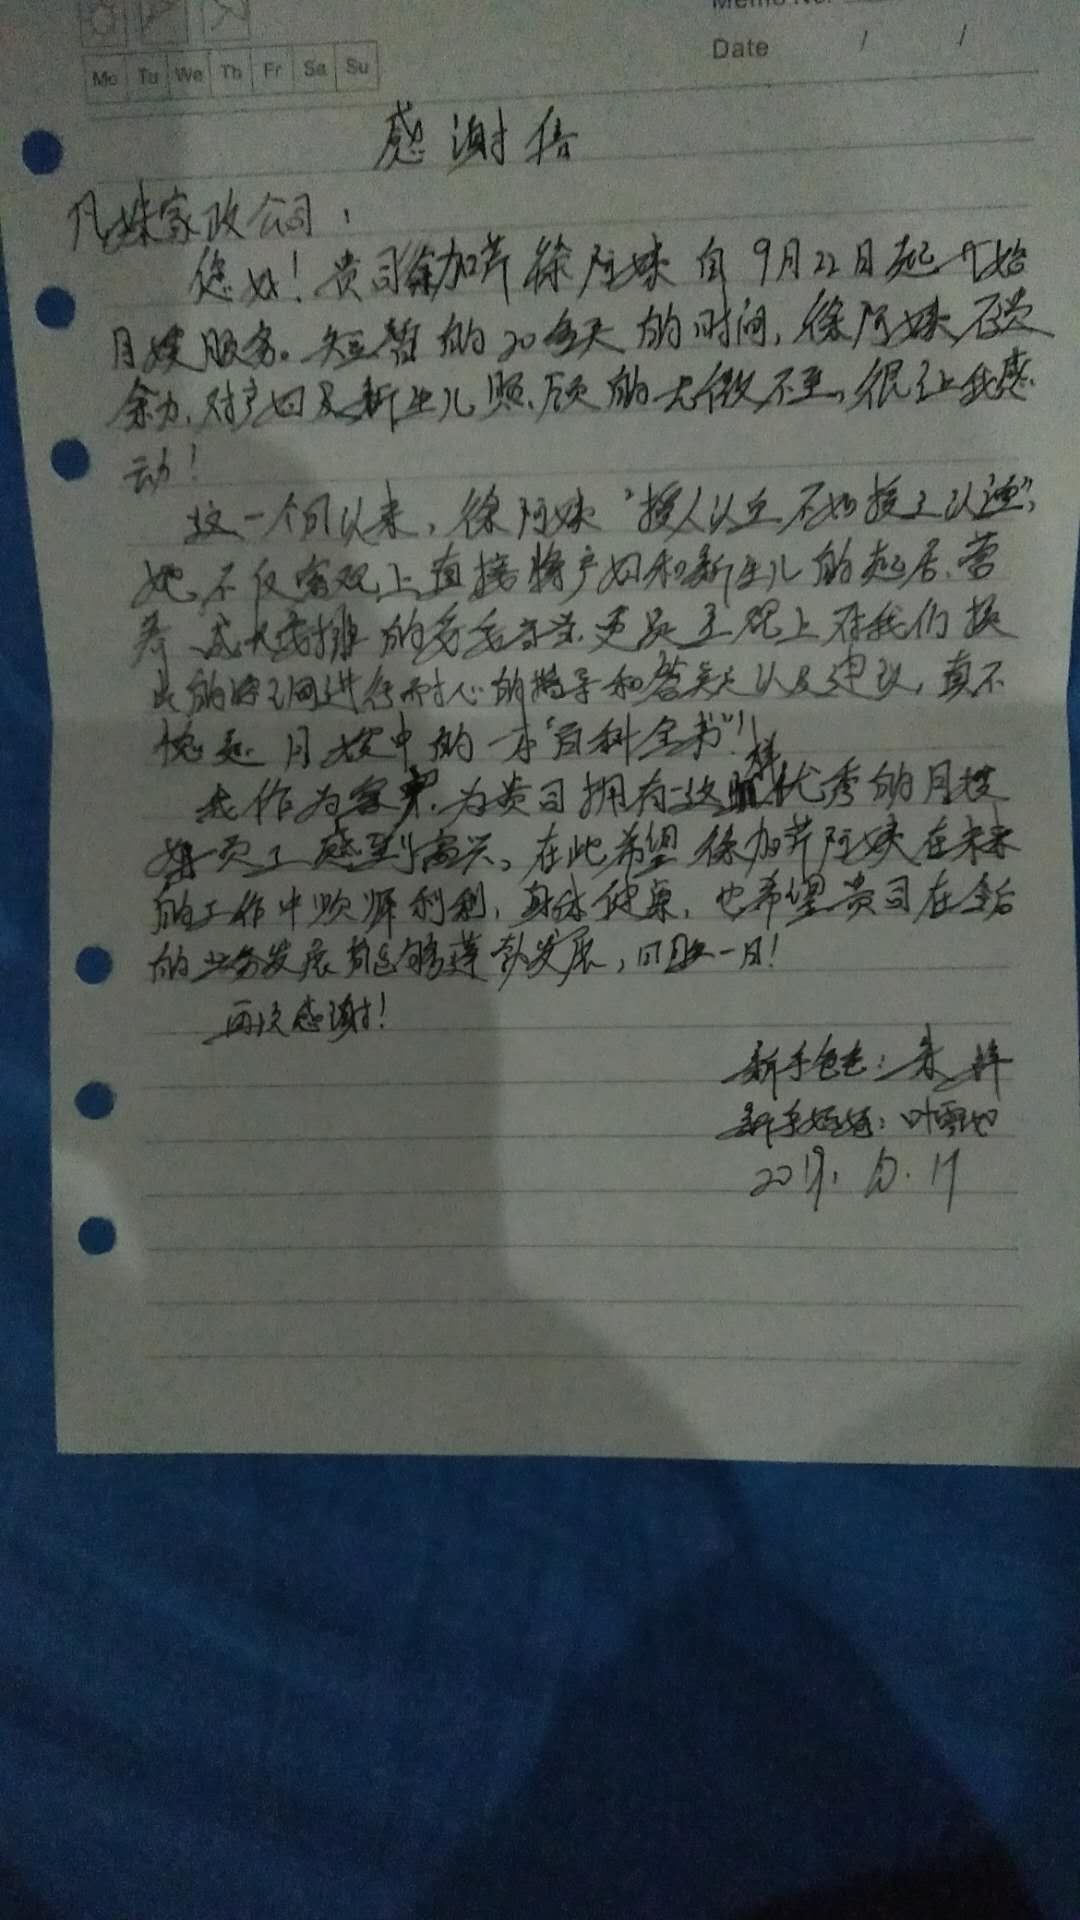 Memo No.
Date / /
Mo Tu We Th Fr Sa Su
感谢信
凡妹家政公司：
您好！贵司徐加芹徐阿妹自9月22日起开始
月嫂服务。短暂的20余天的时间，徐阿妹不遗
余力，对产妇及新生儿照顾的无微不至，很让我感
动！
这一个月以来，徐阿妹“授人以鱼不如授之以渔”，
她不仅客观上直接将产妇和新生儿的起居、营
养、更是主观上对我们提
出的问题进行耐心的指导和答疑以及建议，真不
愧是月嫂中的一本“百科全书”！
我作为客户，为贵司拥有这样优秀的月嫂
员工感到高兴。在此希望徐加芹阿妹在未来
的工作中顺顺利利，身体健康，也希望贵司在今后
的业务发展能够蓬勃发展，日胜一日！
再次感谢！
新手爸爸：朱
新手妈妈：叶雪
2019.10.17